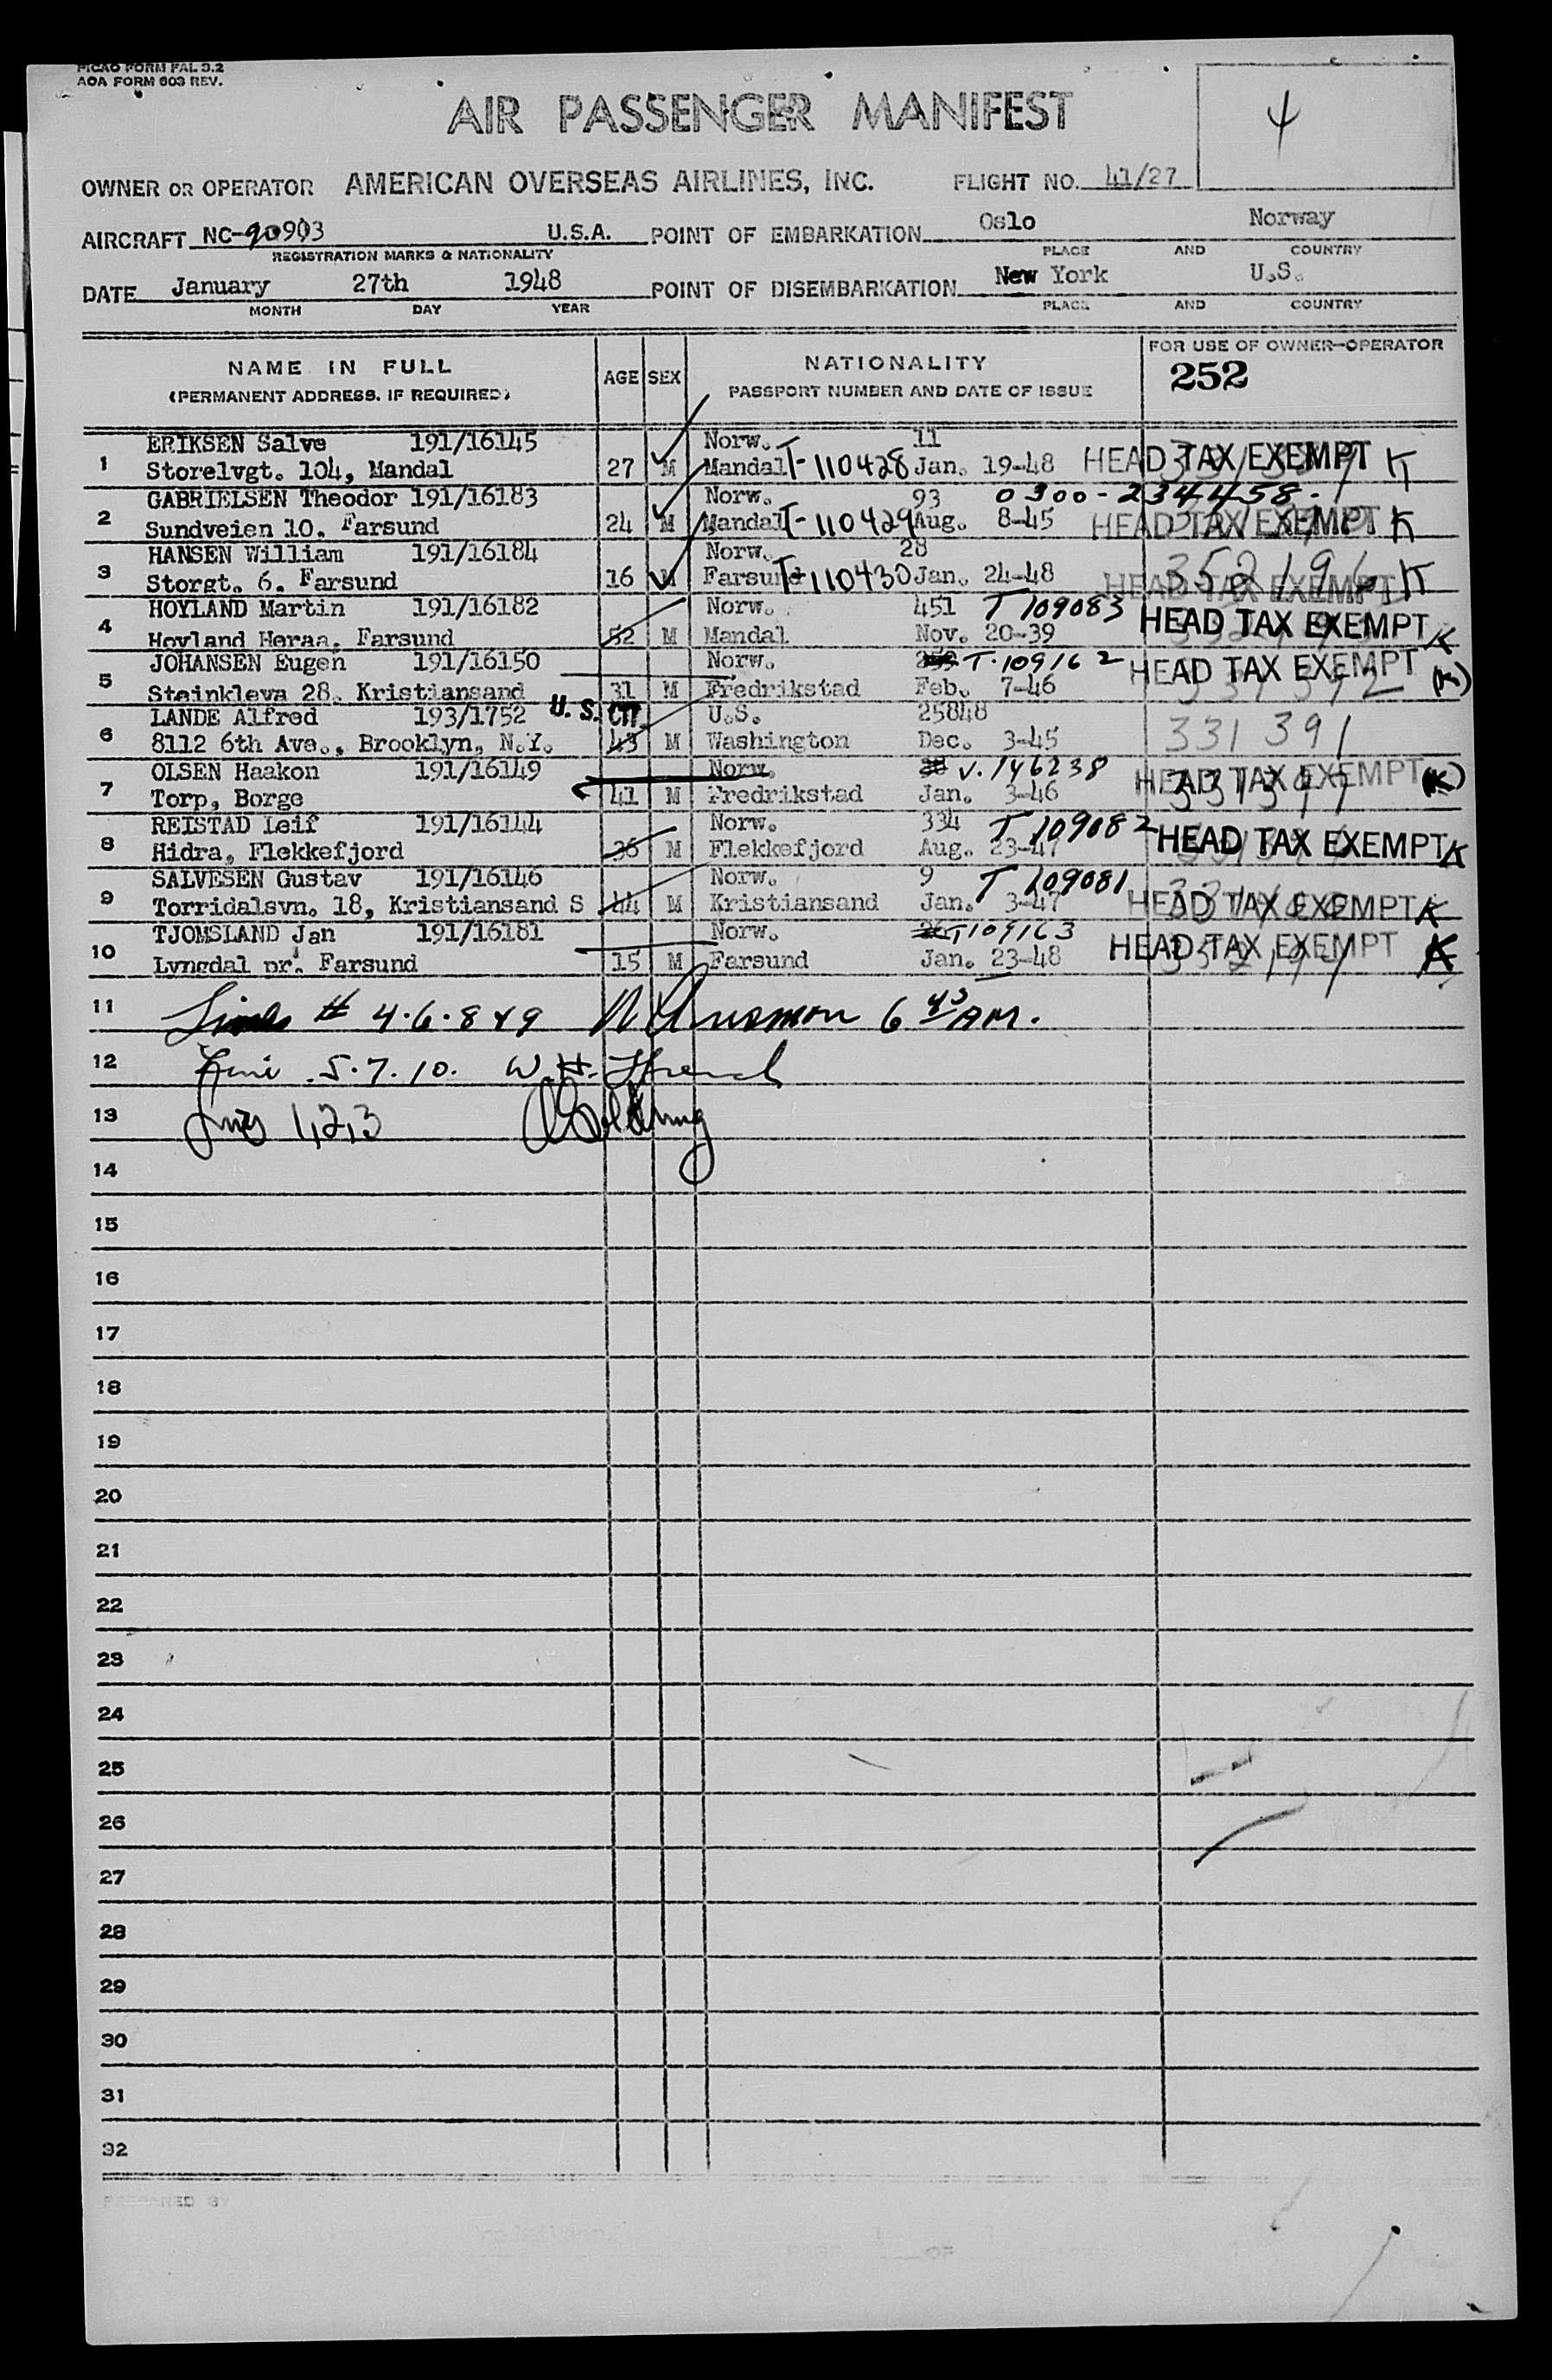 PICAO FORM FAL 3.2
AOA FORM 603 REV.
AIR PASSENGER MANIFEST
4
OWNER OR OPERATOR AMERICAN OVERSEAS AIRLINES, INC. FLIGHT NO. 41/27
AIRCRAFT NC-90903 U.S.A. POINT OF EMBARKATION Oslo Norway
REGISTRATION MARKS & NATIONALITY PLACE AND COUNTRY
DATE January 27th 1948 POINT OF DISEMBARKATION New York U.S.
MONTH DAY YEAR PLACE AND COUNTRY
NAME IN FULL AGE SEX NATIONALITY FOR USE OF OWNER-OPERATOR
(PERMANENT ADDRESS, IF REQUIRED) PASSPORT NUMBER AND DATE OF ISSUE 252
ERIKSEN Salve 191/16145 Norw. 11
1 Storelvgt. 104, Mandal 27 M Mandal T-110428 Jan. 19-48 HEAD TAX EXEMPT K
GABRIELSEN Theodor 191/16183 Norw. 93 0300-234458-
2 Sundveien 10. Farsund 24 M Mandal T-110429 Aug. 8-45 HEAD TAX EXEMPT K
HANSEN William 191/16184 Norw. 28
3 Storgt. 6. Farsund 16 M Farsund T-110430 Jan. 24-48 HEAD TAX EXEMPT 352196 K
HOYLAND Martin 191/16182 Norw. 451 T 109083
4 Hoyland Heraa, Farsund 52 M Mandal Nov. 20-39 HEAD TAX EXEMPT K
JOHANSEN Eugen 191/16150 Norw. T-109162
5 Steinkleva 28. Kristiansand 31 M Fredrikstad Feb. 7-46 HEAD TAX EXEMPT 331392 (K)
LANDE Alfred 193/1752 U. S. CIT. U.S. 25848
6 8112 6th Ave., Brooklyn, N.Y. 43 M Washington Dec. 3-45 331391
OLSEN Haakon 191/16149 Norw. V.146238
7 Torp, Borge 41 M Fredrikstad Jan. 3-46 HEAD TAX EXEMPT (K)
REISTAD Leif 191/16144 Norw. 334 T 109082
8 Hidra, Flekkefjord 36 M Flekkefjord Aug. 23-47 HEAD TAX EXEMPT K
SALVESEN Gustav 191/16146 Norw. 9 T 109081
9 Torridalsvn. 18, Kristiansand S 44 M Kristiansand Jan. 3-47 HEAD TAX EXEMPT K
TJOMSLAND Jan 191/16181 Norw. T109163
10 Lyngdal pr. Farsund 15 M Farsund Jan. 23-48 HEAD TAX EXEMPT K
11 Lines # 4.6.8 & 9 6 45 AM.
12 Line 5.7.10. W.H. French
13 Lines 1,2,3
14
15
16
17
18
19
20
21
22
23
24
25
26
27
28
29
30
31
32
PREPARED BY
OF